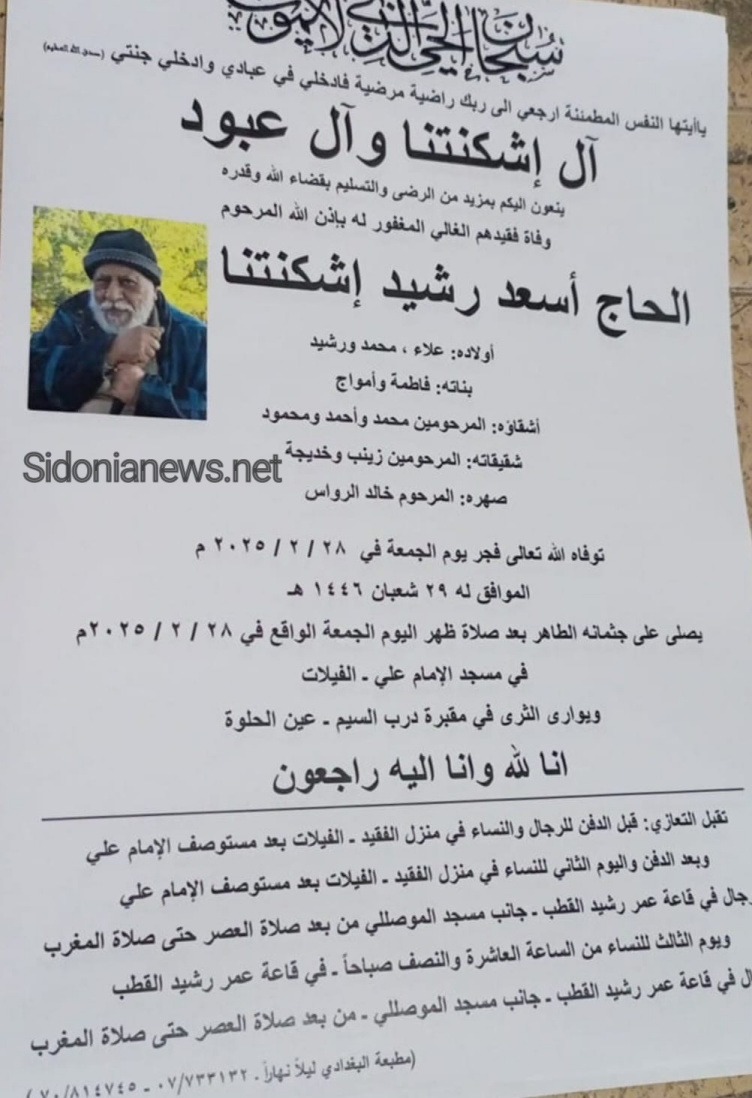 سبحان الحي الذي لا يموت
ياأيتها النفس المطمئنة ارجعي الى ربك راضية مرضية فادخلي في عبادي وادخلي جنتي (صدق الله العظيم)
آل إشكنتنا وآل عبود
ينعون اليكم بمزيد من الرضى والتسليم بقضاء الله وقدره
وفاة فقيدهم الغالي المغفور له بإذن الله المرحوم
الحاج أسعد رشيد إشكنتنا
أولاده: علاء ، محمد ورشيد
بناته: فاطمة وأمواج
أشقاؤه: المرحومين محمد وأحمد ومحمود
شقيقاته: المرحومين زينب وخديجة
Sidonianews.net
صهره: المرحوم خالد الرواس
توفاه الله تعالى فجر يوم الجمعة في ٢٨ / ٢ / ٢٠٢٥ م
الموافق له ٢٩ شعبان ١٤٤٦ هـ
يصلى على جثمانه الطاهر بعد صلاة ظهر اليوم الجمعة الواقع في ٢٨ / ٢ / ٢٠٢٥م
في مسجد الإمام علي ـ الفيلات
ويوارى الثرى في مقبرة درب السيم ـ عين الحلوة
انا لله وانا اليه راجعون
تقبل التعازي: قبل الدفن للرجال والنساء في منزل الفقيد ـ الفيلات بعد مستوصف الإمام علي
وبعد الدفن واليوم الثاني للنساء في منزل الفقيد ـ الفيلات بعد مستوصف الإمام علي
في قاعة عمر رشيد القطب ـ جانب مسجد الموصللي من بعد صلاة العصر حتى صلاة المغرب
ويوم الثالث للنساء من الساعة العاشرة والنصف صباحاً ـ في قاعة عمر رشيد القطب
في قاعة عمر رشيد القطب ـ جانب مسجد الموصللي ـ من بعد صلاة العصر حتى صلاة المغرب
(مطبعة البغدادي ليلاً نهاراً ـ ٠٧/٧٣٣١٣٢ ـ ٧٠/٨١٤٧٤٥)